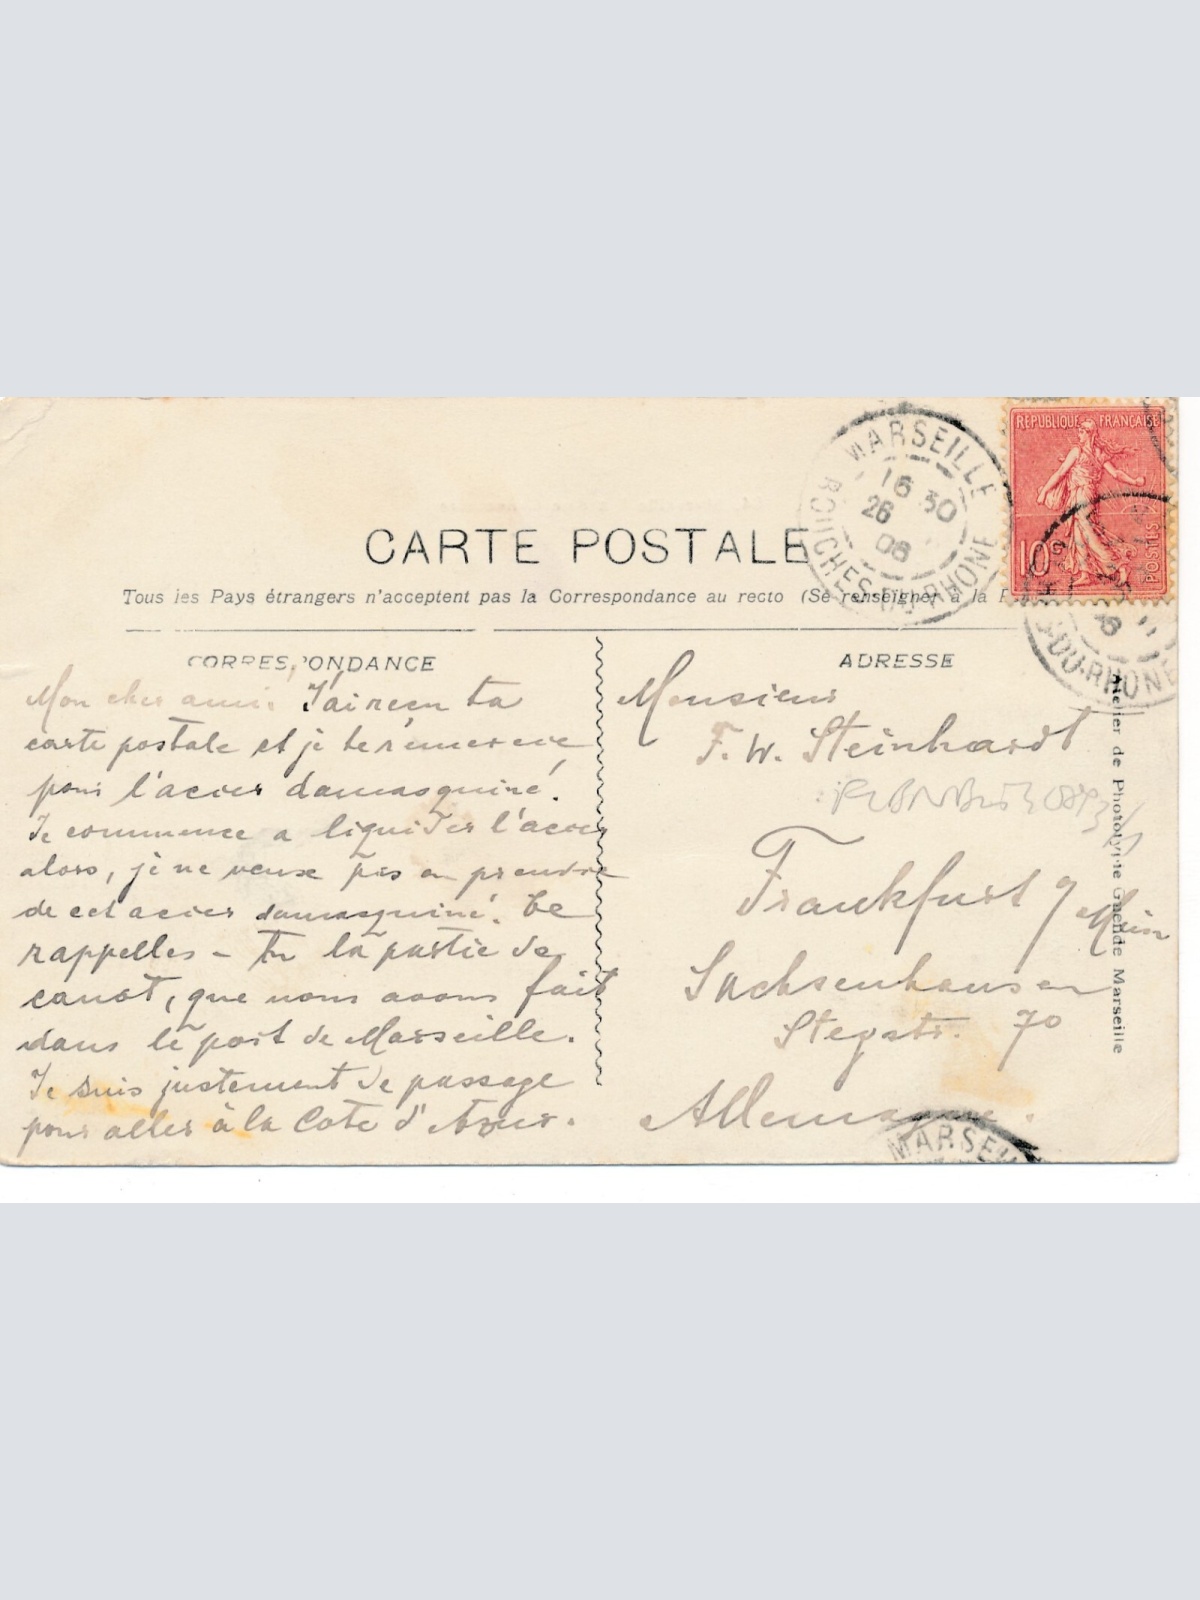 RÉPUBLIQUE FRANÇAISE
10
POSTES
MARSEILLE
16 30
26
06
BOUCHES-DU-RHONE
CARTE POSTALE
Tous les Pays étrangers n'acceptent pas la Correspondance au recto (Se renseigner à la P
CORRESPONDANCE
Mon cher ami. J'ai recu ta
carte postale et je te remercie
pour l'acier damasquiné.
Je commence a liquider l'acier
alors, je ne veux pas en prendre
de cet acier damasquiné. Te
rappelles-tu la partie de
canot, que nous avons fait
dans le port de Marseille.
Je suis justement de passage
pour aller à la Cote d'Azur.
ADRESSE
Monsieur
F. W. Steinhardt
Frankfurt a/ Main
Sachsenhausen
Stegstr. 70
Allemagne.
-DU-RHONE
MARSEI
Atelier de Phototypie Guende Marseille